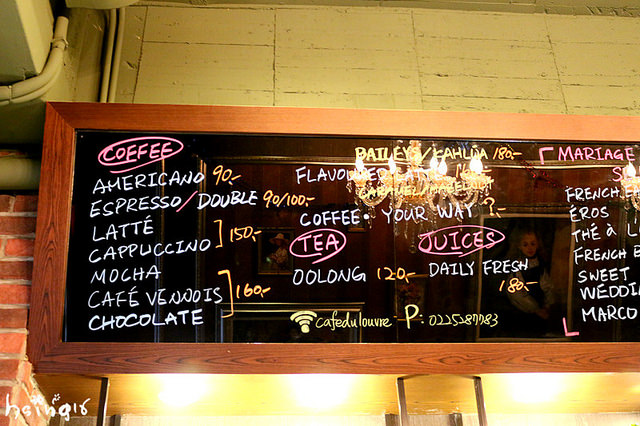 COFFEE
AMERICANO 90.-
ESPRESSO/DOUBLE 90/100.-
LATTÉ
CAPPUCCINO 150.-
MOCHA
CAFÉ VENNOIS 160.-
CHOCOLATE
BAILEYS/KAHLUA 180.-
FLAVOURED
COFFEE. YOUR WAY ?.-
TEA
OOLONG 120.-
JUICES
DAILY FRESH
180.-
cafedulouvre P: 0225287783
MARIAGE
FRENCH
ÉROS
THÉ À
FRENCH
SWEET
WEDDI
MARCO
hsingir